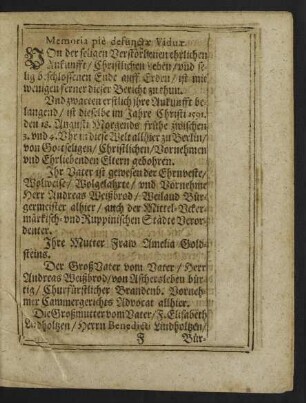 Memoria piè defunctæ Viduæ.
VOn der seligen Verstorbenen ehrlichen
Ankunfft / Christlichen Leben / vnd se-
lig beschlossenen Ende auff Erden / ist mit
wenigen ferner dieser Bericht zu thun.
Vnd zwar erstlich ihre Ankunfft be-
langend / ist dieselbe im Jahre Christi
den 18. Augusti Morgends frühe zwischen
3. vnd 4. Vhr in diese Welt allhier zu Berlin /
von Gottseligen / Christlichen / Vornehmen
vnd Ehrliebenden Eltern gebohren.
Ihr Vater ist gewesen der Ehrnveste /
Wolweise / Wolgelahrte / vnd Vornehme
Herr Andreas Weißbrod / Weiland Bür-
germeister alhier / auch der Mittel-Vcker-
märckisch- vnd Ruppinischen Städte Veror-
denter.
Ihre Mutter Fraw Amelia Gold-
steins.
Der GroßVater vom Vater / Herr
Andreas Weißbrod / von Aschersleben bür-
tig / Churfürstlicher Brandenb. Vorneh-
mer Cammergerichts Advocat allhier.
Die Großmutter vom Vater / F. Elisabeth
Lindholtzen / Herrn Benedicti Lindholtzen /
F Bür-